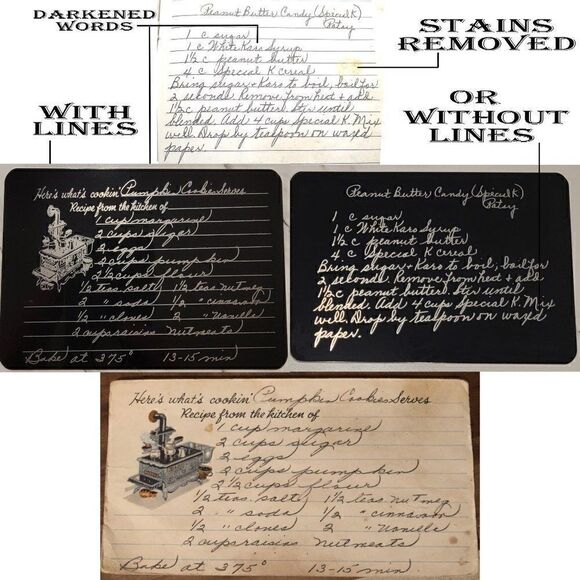 DARKENED
WORDS
STAINS
REMOVED
WITH
LINES
OR
WITHOUT
LINES
Peanut Butter Candy (Special K)
Patsy
1 c sugar
1 c White Karo Syrup
1½ c peanut butter
4 c Special K cereal
Bring sugar + Karo to boil, boil for
2 seconds. Remove from heat + add
1½ c peanut butter. Stir until
blended. Add 4 cups Special K. Mix
well. Drop by teaspoon on waxed
paper.
Here's what's cookin' Pumpkin Cookies Serves
Recipe from the kitchen of
1 cup margarine
2 cups sugar
2 eggs
2 cups pumpkin
2½ cups flour
½ teas. salt 1½ teas nutmeg
2 " soda ½ " cinnamon
½ " cloves 2 " Vanilla
2 cups raisins Nutmeats
Bake at 375° 13-15 min
Peanut Butter Candy (Special K)
Patsy
1 c sugar
1 c White Karo Syrup
1½ c peanut butter
4 c Special K cereal
Bring sugar + Karo to boil, boil for
2 seconds. Remove from heat + add
1½ c peanut butter. Stir until
blended. Add 4 cups Special K. Mix
well. Drop by teaspoon on waxed
paper.
Here's what's cookin' Pumpkin Cookies Serves
Recipe from the kitchen of
1 cup margarine
2 cups sugar
2 eggs
2 cups pumpkin
2½ cups flour
½ teas. salt 1½ teas nutmeg
2 " soda ½ " cinnamon
½ " cloves 2 " Vanilla
2 cups raisins Nutmeats
Bake at 375° 13-15 min.